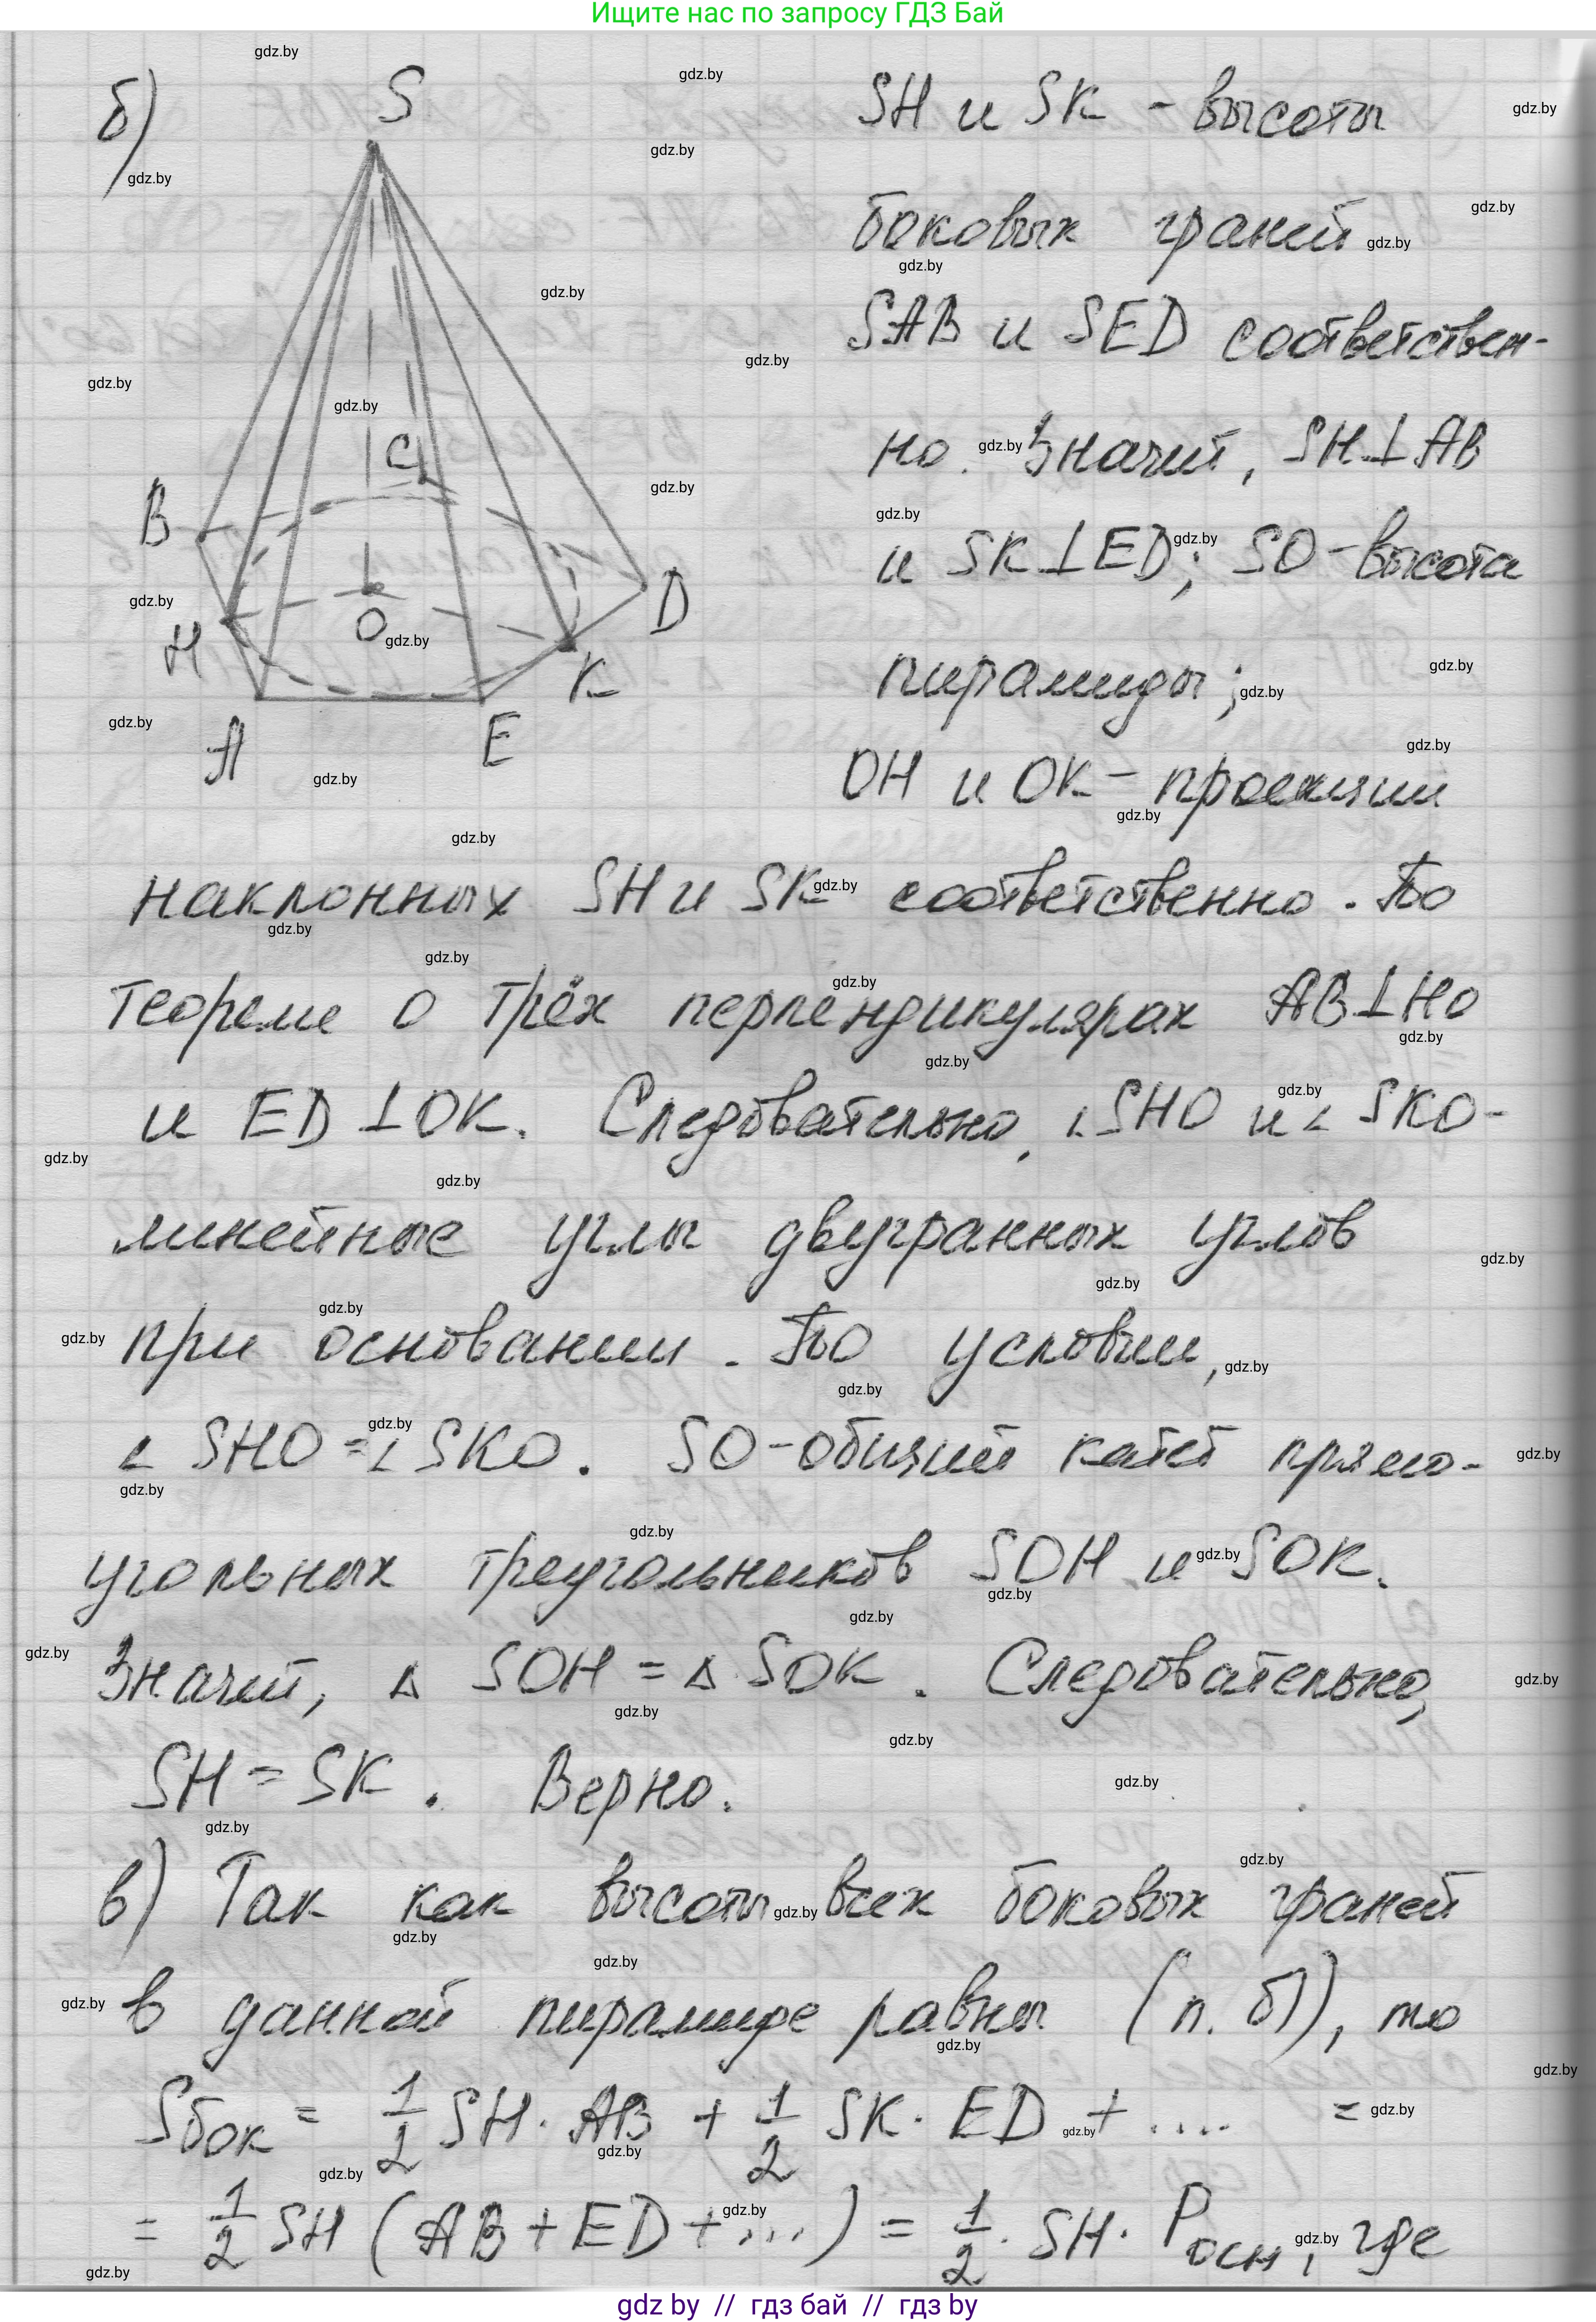 Ищите нас по запросу ГДЗ Бай
б)
S
B
C
H
O
D
K
A
E
SH и SK - высоты
боковых граней
SAB и SED соответствен-
но. Значит, SH⊥AB
и SK⊥ED; SO-высота
пирамиды;
OH и OK - проекции
наклонных SH и SK соответственно. По
теореме о трёх перпендикулярах AB⊥HO
и ED⊥OK. Следовательно, ∠SHO и ∠SKO-
линейные углы двугранных углов
при основании. По условии,
∠SHO=∠SKO. SO-общий катет прямо-
угольных треугольников SOH и SOK.
Значит, Δ SOH = Δ SOK. Следовательно,
SH = SK. Верно.
в) Так как высоты всех боковых граней
в данной пирамиде равны (п. б)), то
Sбок = 1/2 SH · AB + 1/2 SK · ED + .... =
= 1/2 SH (AB + ED + ...) = 1/2 · SH · Pосн, где
gdz by // гдз бай // гдз by